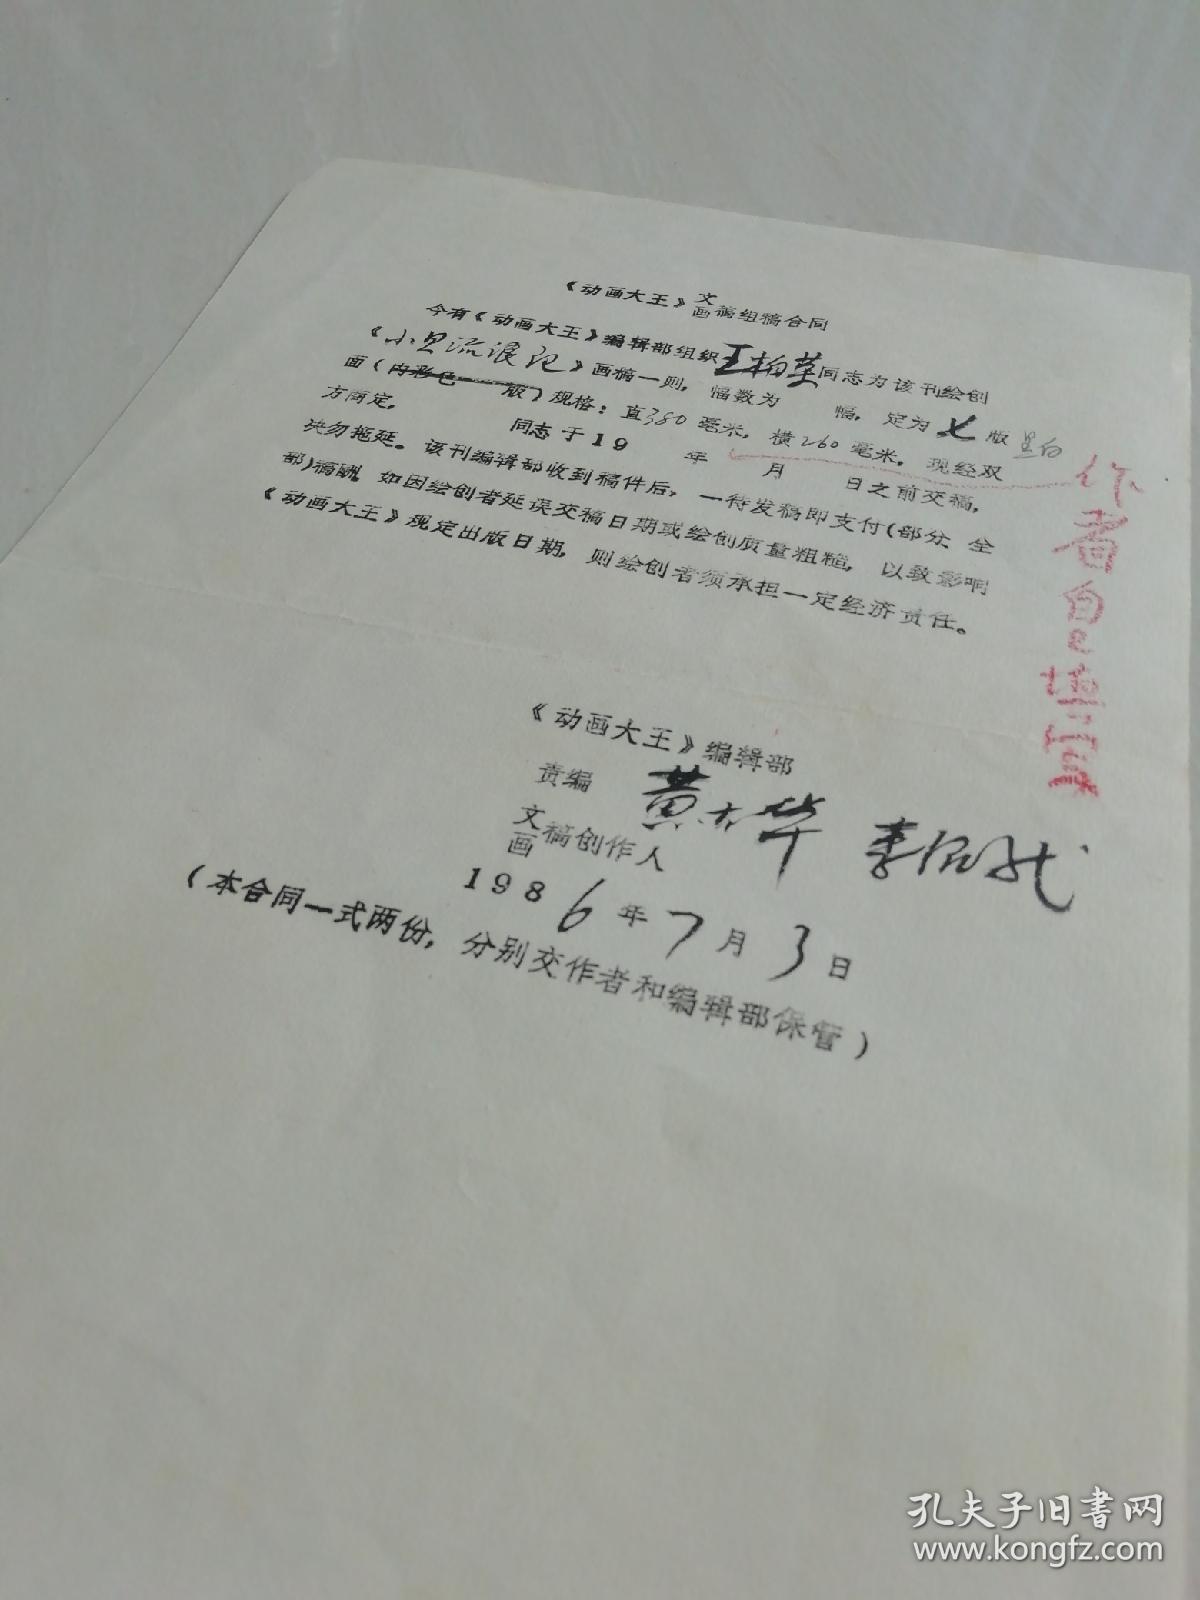 《动画大王》文画稿组稿合同
今有《动画大王》编辑部组织王柏华同志为该刊绘创
《小贝流浪记》画稿一则，幅数为 幅，定为七版黑白
面（内彩色 版）规格：直380毫米，横260毫米。现经双
方商定， 同志于19 年 月 日之前交稿，
决勿拖延。该刊编辑部收到稿件后，一待发稿即支付（部分、全
部）稿酬。如因绘创者延误交稿日期或绘创质量粗糙，以致影响
《动画大王》规定出版日期，则绘创者须承担一定经济责任。
作者自填
《动画大王》编辑部
责编 黄 华
文画稿创作人
1986年7月3日
（本合同一式两份，分别交作者和编辑部保管）
孔夫子旧书网
www.kongfz.com